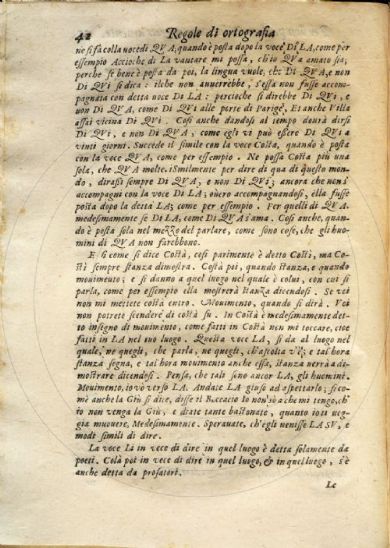 42 Regole di ortografia
ne si fa colla nocedi QVA, quando è posta dopo la voce DI LA, come per
essempio Accioche di La vantare mi possa, ch'io QVA amato sia;
perche se bene è posta da poi, la lingua vuole, che DI QVA, e non
DI QVI si dica: ilche non auuerrebbe, s'essa non fusse accom-
pagnata con detta noce DI LA: percioche si direbbe DI QVI, e
non DI QVA, come DI QVI alle porte di Parigi, Et anche Villa
assai vicina DI QVI. Così anche dandosi al tempo dourà dirsi
DI QVI, e non DI QVA, come egli vi può essere DI QVI a
vinti giorni. Succede il simile con la voce Costà, quando è posta
con la voce QVA, come per essempio. Ne possa Costà più una
sola, che QVA molte. iSmilmente per dire di qua di questo mon-
do, dirassi sempre DI QVA, e non DI QVI; ancora che non s'
accompagni con la voce DI LA; ouero accompagnandosi, ella fusse
posta dopo la detta LA; come per essempio. Per quelli di QVA.
medesimamente se DI LA, come DI QVA s'ama. Così anche, quan-
do è posta sola nel mezzo del parlare, come sono cose, che gli huo-
mini di QVA non farebbono.
E si come si dice Costà, così parimente è detto Costì, ma Co-
stì sempre stanza dimostra. Costà poi, quando stanza, e quando
mouimento; e si danno a quel luogo nel quale è colui, con cui si
parla, come per essempio ella mostrerà stanza dicendosi. Se voi
non mi mettete costà entro. Mouimento, quando si dirà. Voi
non potrete scendere di costà su. In Costà è medesimamente det-
to insegno di mouimento, come fatti in Costà non mi toccare, cioè
fatti in LA nel tuo luogo. Questa voce LA, si da al luogo nel
quale, ne quegli, che parla, ne quegli, ch'ascolta v'è; e tal hora
stanza segna, e tal hora mouimento anche essa, stanza uerrà a di-
mostrare dicendosi. Pensa, che tali sono ancor LA, gli huomini.
Mouimento, io vò verso LA. Andate LA giuso ad aspettarlo; sì co-
mè anche la Giù si dice, disse il Boccacio Io non sò a che mi tengo, ch'
io non venga la Giù, e diate tante bastonate, quanto io ti ueg-
gia muouere, Medesimamente. Sperauate, ch'egli uenisse LA SV, e
modi simili di dire.
La voce Li in vece di dire in quel luogo è detta solamente da
poeti. Colà poi in vece di dire in quel luogo, & in quel luogo, s'è
anche detta da prosatori.
Le